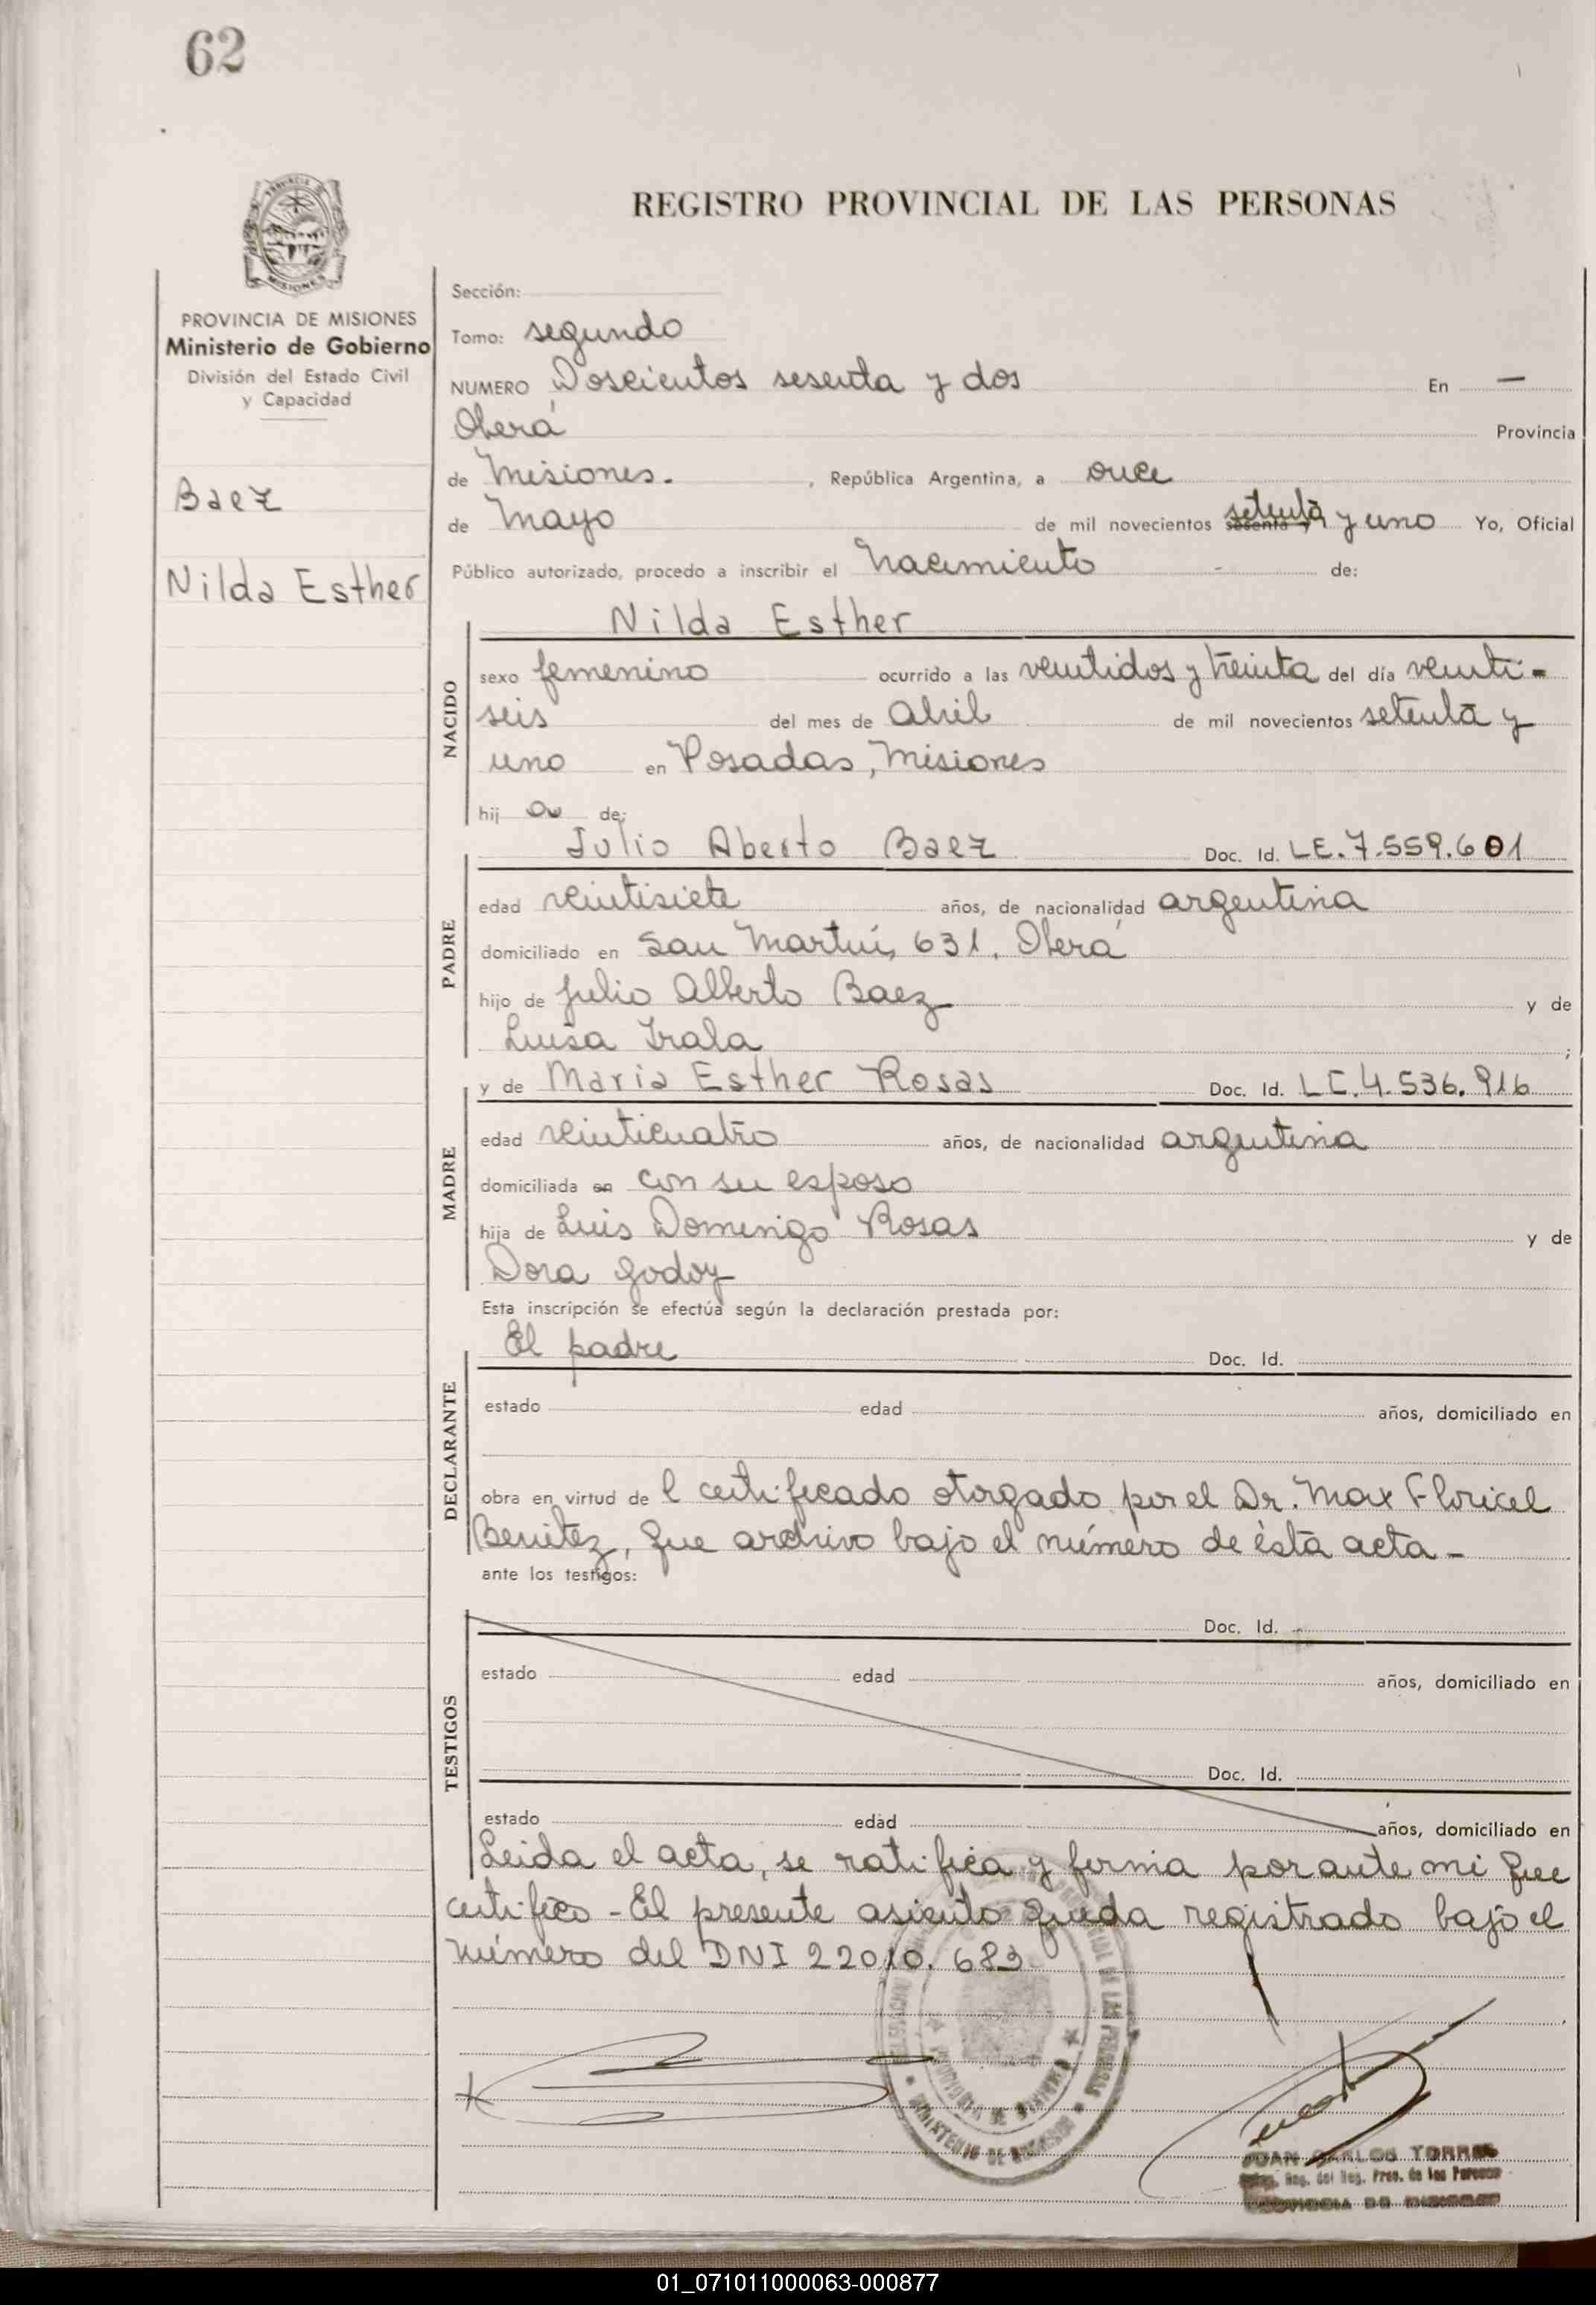 62
REGISTRO PROVINCIAL DE LAS PERSONAS
PROVINCIA DE MISIONES
Ministerio de Gobierno
División del Estado Civil
y Capacidad
Baez
Nilda Esther
Sección:
Tomo: segundo
NUMERO Doscientos sesenta y dos En —
Oberá Provincia
de Misiones. , República Argentina, a once
de Mayo de mil novecientos setenta y uno Yo, Oficial
Público autorizado, procedo a inscribir el Nacimiento de:
Nilda Esther
NACIDO
sexo femenino ocurrido a las veintidos y treinta del día veinti-
seis del mes de Abril de mil novecientos setenta y
uno en Posadas, Misiones
hij a de:
Julio Aberto Baez Doc. Id. LE. 7.559.601
PADRE
edad veintisiete años, de nacionalidad argentina
domiciliado en San Martín, 631, Oberá
hijo de Julio Alberto Baez y de
Luisa Irala ;
y de Maria Esther Rosas Doc. Id. LC. 4.536.916
MADRE
edad veinticuatro años, de nacionalidad argentina
domiciliada en con su esposo
hija de Luis Domingo Rosas y de
Dora Godoy
Esta inscripción se efectúa según la declaración prestada por:
El padre Doc. Id.
DECLARANTE
estado edad años, domiciliado en
obra en virtud de l certificado otorgado por el Dr. Max Floricel
Benitez, que archivo bajo el número de ésta acta -
ante los testigos:
Doc. Id.
TESTIGOS
estado edad años, domiciliado en
Doc. Id.
estado edad años, domiciliado en
Leida el acta, se ratifica y firma por ante mi que
certifico - El presente asiento queda registrado bajo el
número del DNI 22010.683
JUAN CARLOS TORRES
del Reg. Prov. de las Personas
PROVINCIA DE MISIONES
01_071011000063-000877